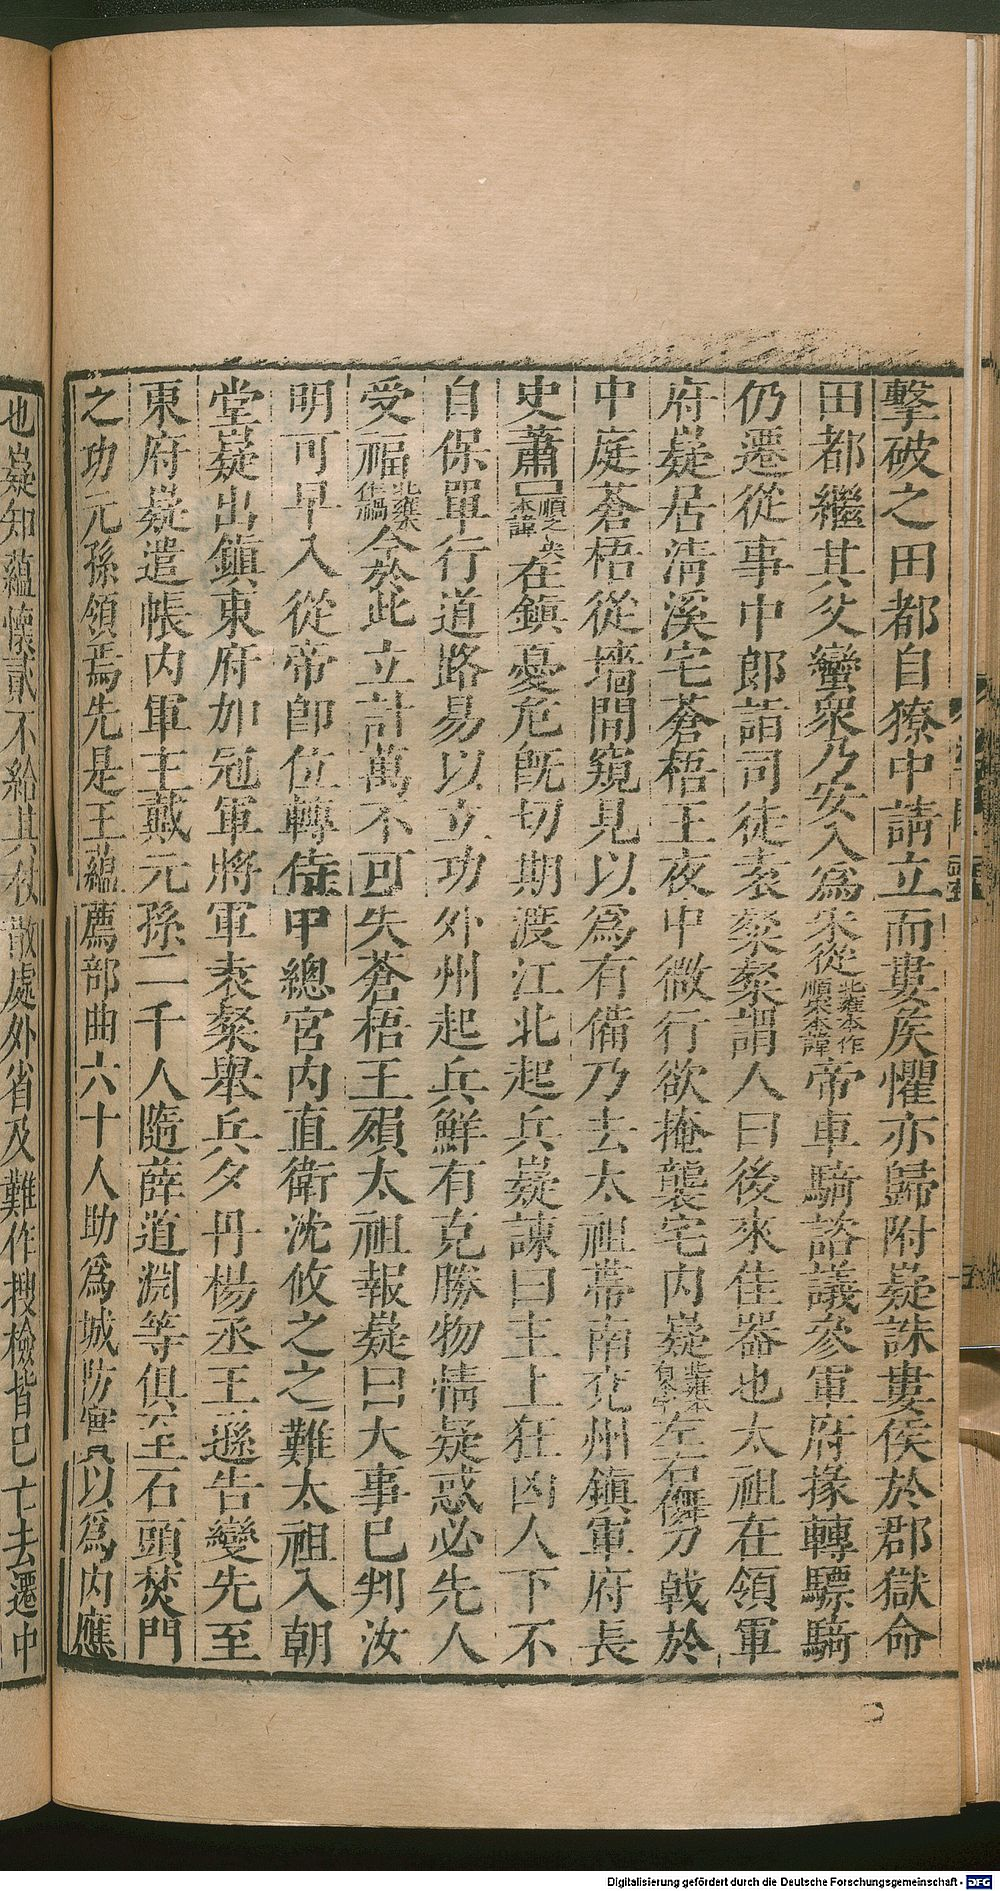 擊破之田都自獠中請立而婁侯懼亦歸附嶷誅婁侯於郡獄命
田都繼其父蠻衆乃安入爲宋從北雍本作順宋本諱帝車騎諮議參軍府掾轉驃騎
仍遷從事中郎詣司徒袁粲粲謂人曰後來佳器也太祖在領軍
府嶷居淸溪宅蒼梧王夜中微行欲掩襲宅内嶷北雍本有令字左右儛刀戟於
中庭蒼梧從墻間窺見以爲有備乃去太祖帶南兖州鎭軍府長
史蕭順之宋本諱在鎭憂危旣切期渡江北起兵嶷諫曰主上狂凶人下不
自保單行道路易以立功外州起兵鮮有克勝物情疑惑必先人
受福北雍本作禍今於此立計萬不可失蒼梧王殞太祖報嶷曰大事已判汝
明可早入從帝卽位轉侍甲總宮内直衛沈攸之之難太祖入朝
堂嶷出鎭東府加冠軍將軍袁粲舉兵夕丹楊丞王遜告變先至
東府嶷遣帳内軍主戴元孫二千人隨薛道淵等俱至石頭焚門
之功元孫預焉先是王蘊薦部曲六十人助爲城防實以爲内應
也嶷知蘊懷貳不給其仗散處外省及難作搜檢皆已亡去遷中
Digitalisierung gefördert durch die Deutsche Forschungsgemeinschaft - DFG